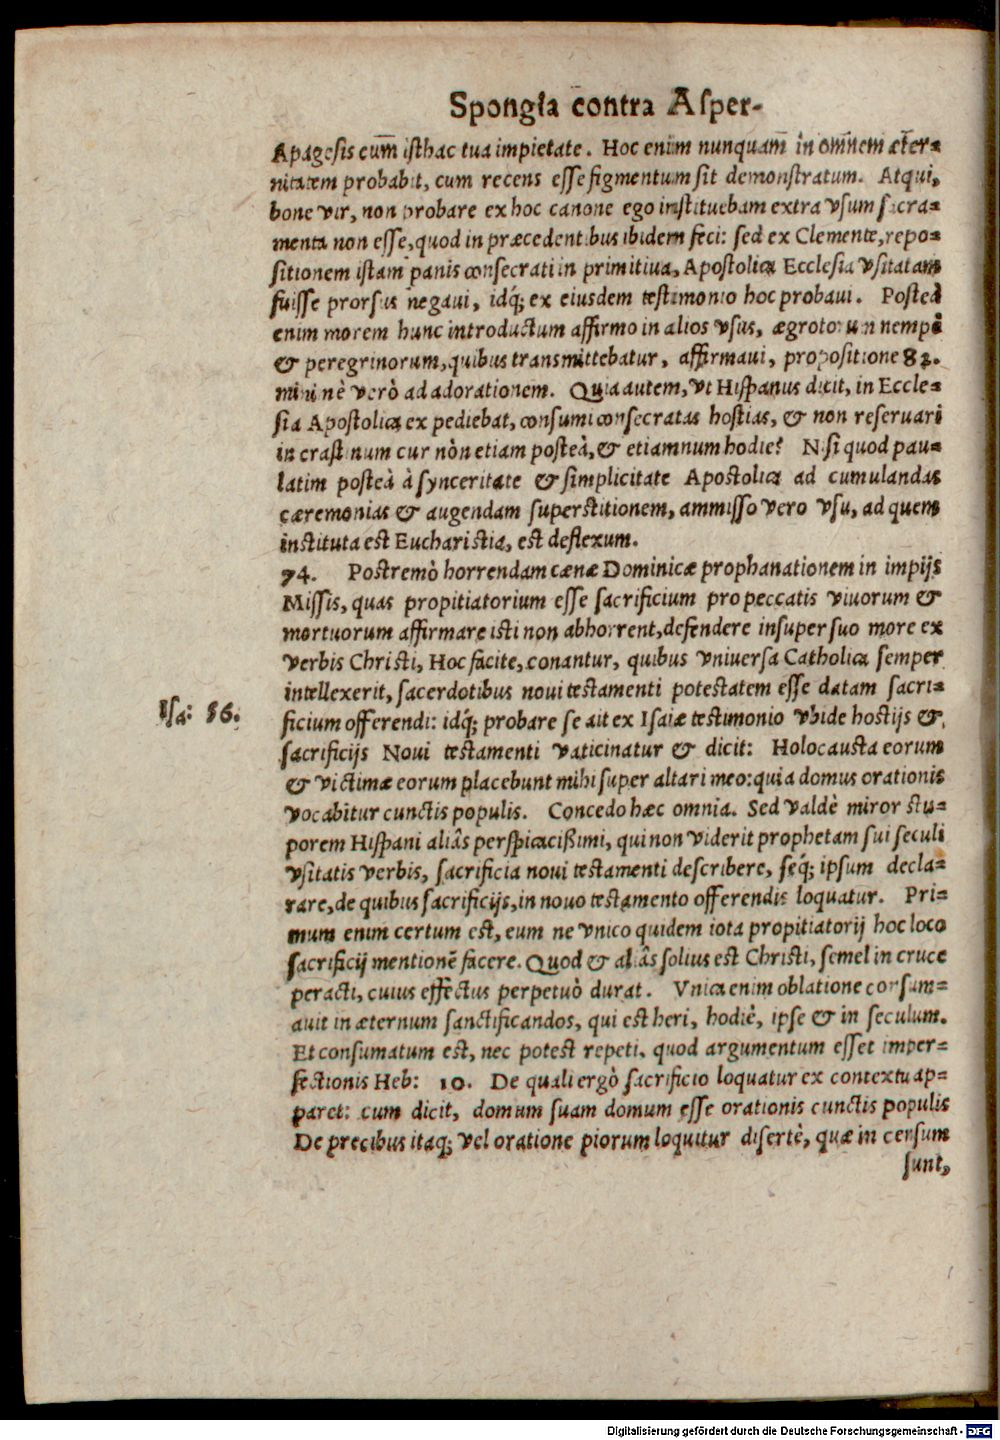 Spongia contra Asper-
Apagesis cum̅ isthac tua impietate. Hoc enim nunquam̅ in om̅nem æter-
nitatem probabit, cum recens esse figmentum sit demonstratum. Atqui,
bone vir, non probare ex hoc canone ego instituebam extra vsum sacra-
menta non esse, quod in præcedentibus ibidem feci: sed ex Clemente, repo-
sitionem istam panis consecrati in primitiua, Apostolica Ecclesia vsitatam
fuisse prorsus negaui, idq́; ex eiusdem testimonio hoc probaui. Posteà
enim morem hunc introductum affirmo in alios vsus, ægrotorum nempè
& peregrinorum, quibus transmittebatur, affirmaui, propositione 82.
minimè verò ad adorationem. Quia autem, vt Hispanus dicit, in Eccle-
sia Apostolica expediebat, consumi consecratas hostias, & non reseruari
in crastinum cur nòn etiam posteà, & etiamnum hodie? Nisi quod pau-
latim posteà à synceritate & simplicitate Apostolica ad cumulandas
cæremonias & augendam superstitionem, ammisso vero vsu, ad quem
instituta est Eucharistia, est deflexum.
74. Postremò horrendam cænæ Dominicæ prophanationem in impijs
Missis, quas propitiatorium esse sacrificium pro peccatis viuorum &
mortuorum affirmare isti non abhorrent, defendere insuper suo more ex
verbis Christi, Hoc facite, conantur, quibus vniuersa Catholica semper
intellexerit, sacerdotibus noui testamenti potestatem esse datam sacri-
Isa: 56.
ficium offerendi: idq́; probare se ait ex Isaiæ testimonio vbi de hostijs &
sacrificijs Noui testamenti vaticinatur & dicit: Holocausta eorum
& victimæ eorum placebunt mihi super altari meo: quia domus orationis
vocabitur cunctis populis. Concedo hæc omnia. Sed valdè miror stu-
porem Hispani aliâs perspicacißimi, qui non viderit prophetam sui seculi
vsitatis verbis, sacrificia noui testamenti describere, seq́; ipsum decla-
rare, de quibus sacrificijs, in nouo testamento offerendis loquatur. Pri-
mum enim certum est, eum ne vnico quidem iota propitiatorij hoc loco
sacrificij mentionē facere. Quod & aliâs solius est Christi, semel in cruce
peracti, cuius effectus perpetuò durat. Vnica enim oblatione consum-
auit in æternum sanctificandos, qui est heri, hodiè, ipse & in seculum.
Et consumatum est, nec potest repeti, quod argumentum esset imper-
fectionis Heb: 10. De quali ergò sacrificio loquatur ex contextu ap-
paret: cum dicit, domum suam domum esse orationis cunctis populis
De precibus itaq; vel oratione piorum loquitur disertè, quæ in censum
sunt,
Digitalisierung gefördert durch die Deutsche Forschungsgemeinschaft - DFG